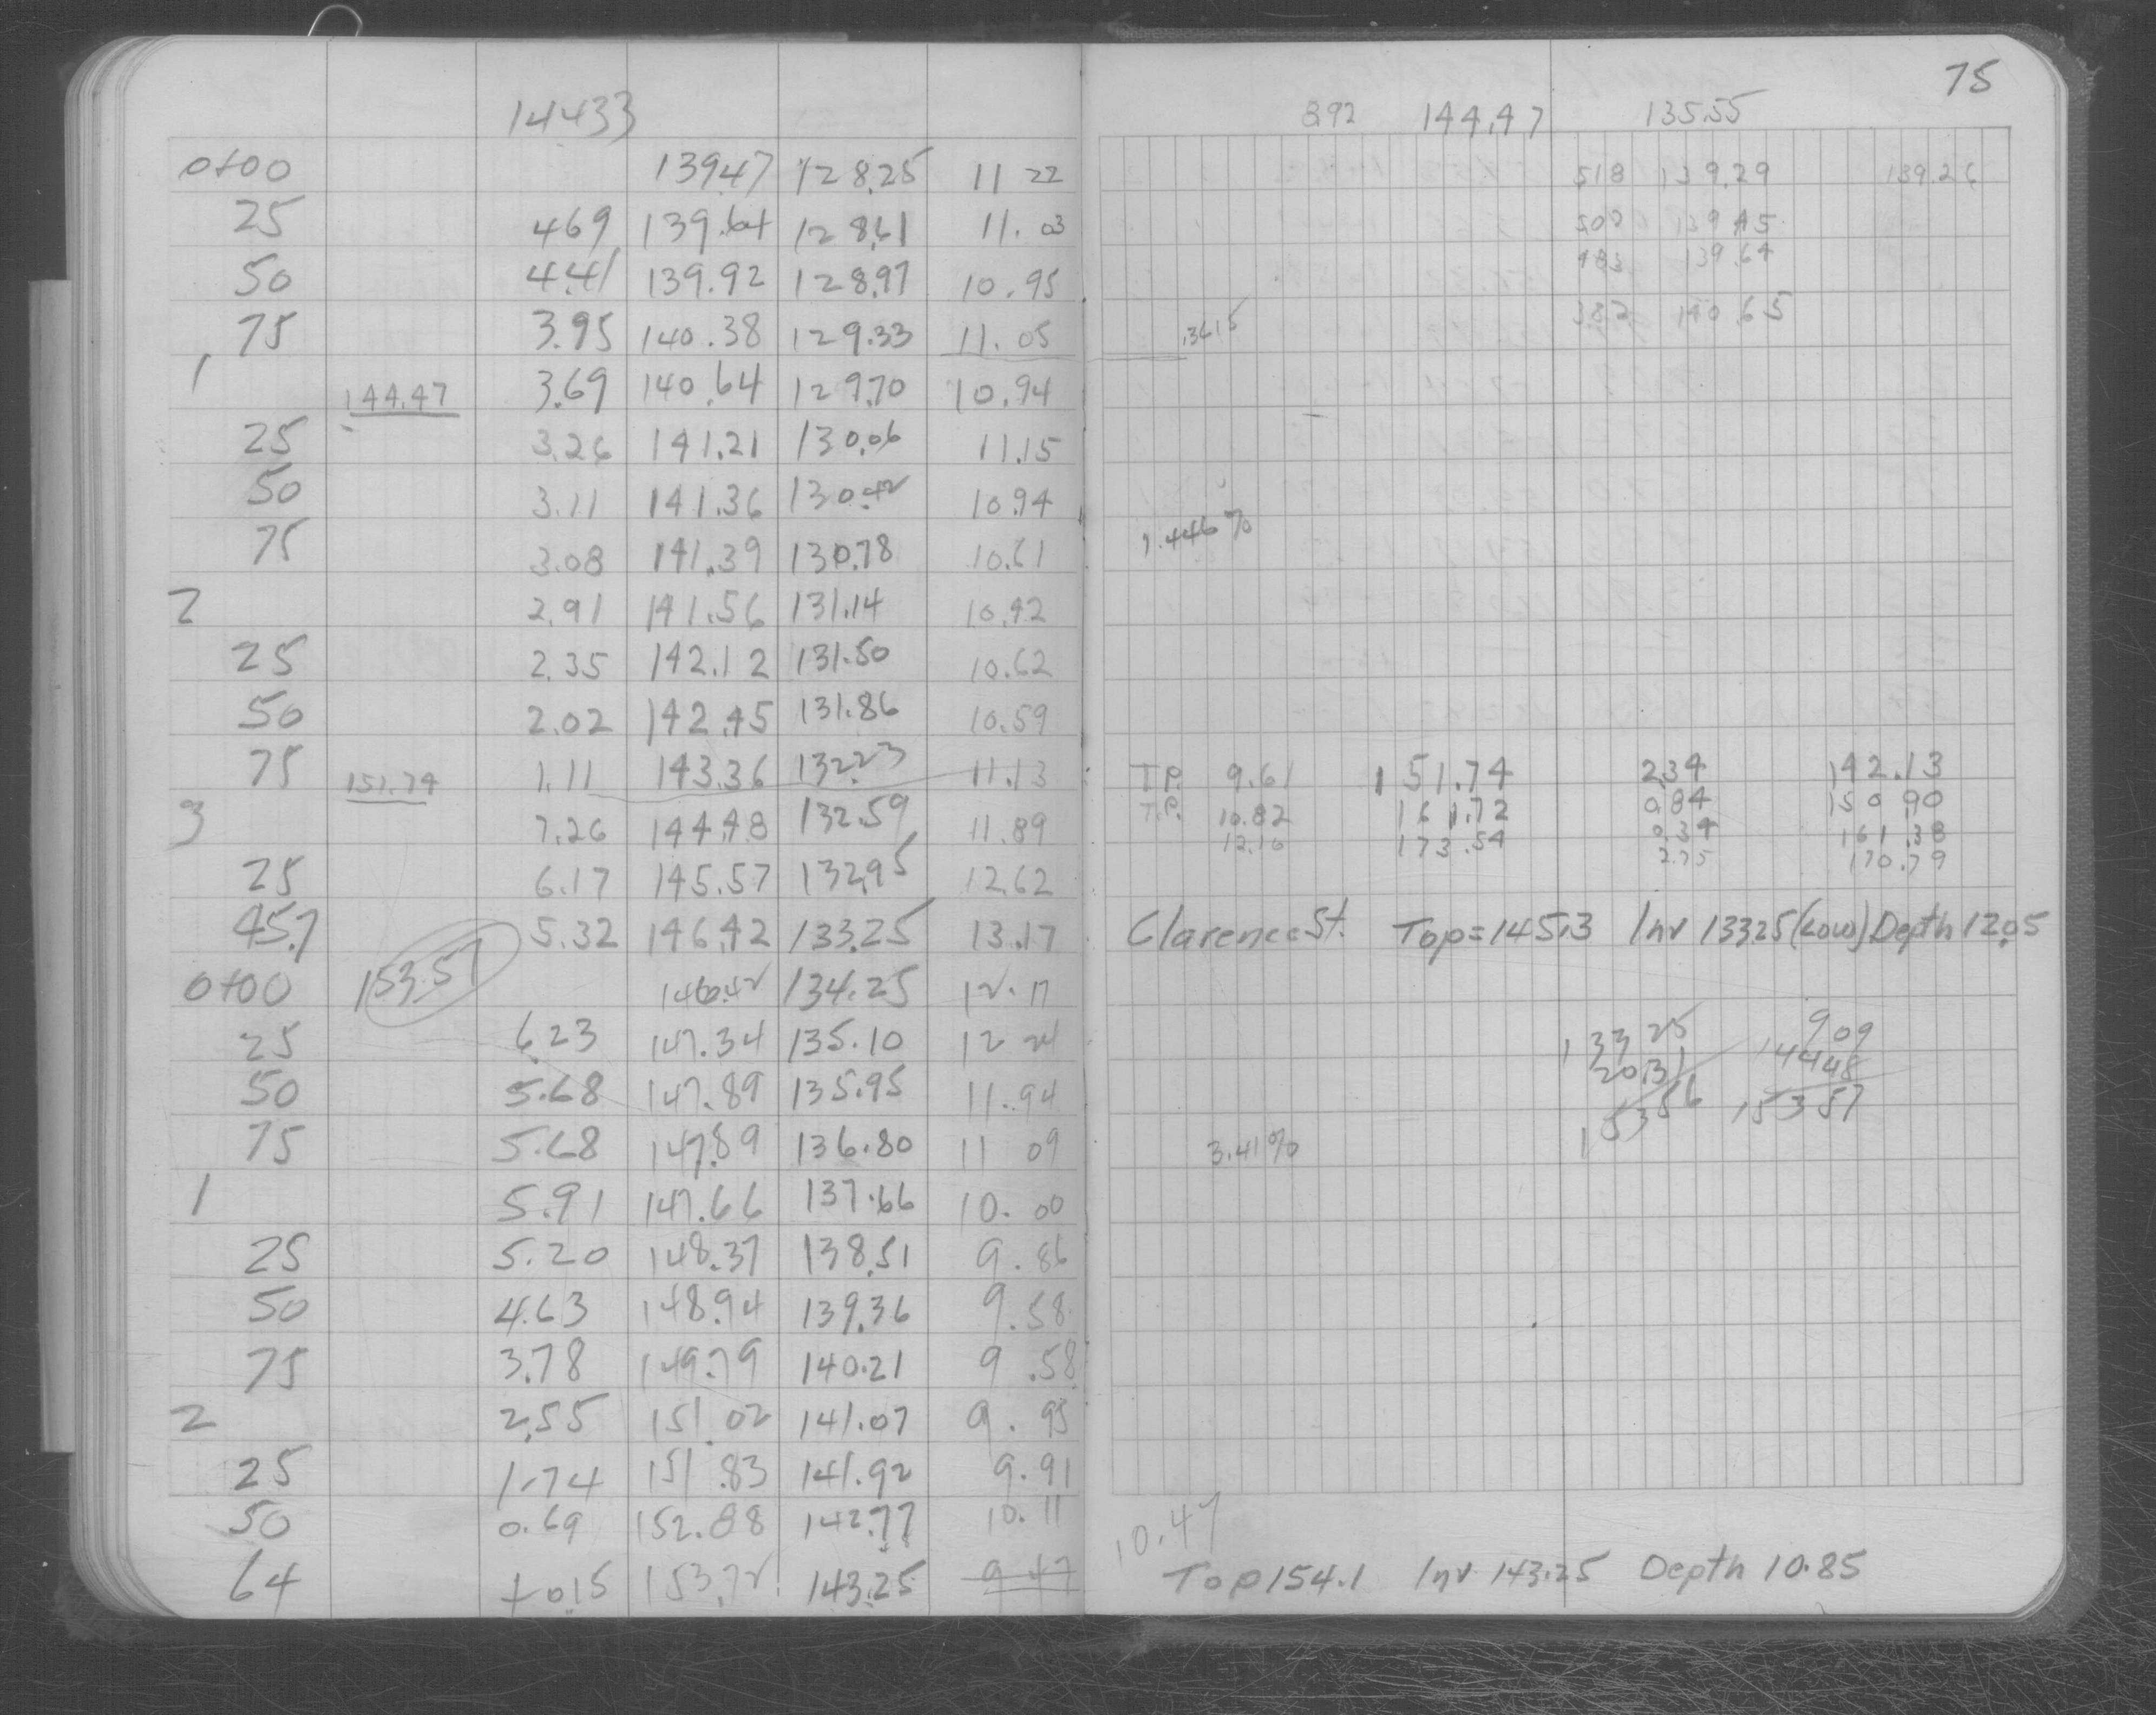 14433
0+00 139.47 128.25 11 22
25 469 139.64 128.61 11.03
50 4.41 139.92 128.97 10.95
75 3.95 140.38 129.33 11.05
1 144.47 3.69 140.64 129.70 10.94
25 3.26 141.21 130.06 11.15
50 3.11 141.36 130.42 10.94
75 3.08 141.39 130.78 10.61
2 2.91 141.56 131.14 10.42
25 2.35 142.12 131.50 10.62
50 2.02 142.45 131.86 10.59
75 151.74 1.11 143.36 132.23 11.13
3 7.26 144.48 132.59 11.89
25 6.17 145.57 132.95 12.62
45.7 5.32 146.42 133.25 13.17
0+00 153.57 146.42 134.25 12.17
25 6.23 147.34 135.10 12 24
50 5.68 147.89 135.95 11.94
75 5.68 147.89 136.80 11 09
1 5.91 147.66 137.66 10.00
25 5.20 148.37 138.51 9.86
50 4.63 148.94 139.36 9.58
75 3.78 149.79 140.21 9.58
2 2.55 151.02 141.07 9.95
25 1.74 151.83 141.92 9.91
50 0.69 152.88 142.77 10.11
64 +0.15 153.72 143.25 9.47
75
8.92 144.47 135.55
518 139.29 139.26
139.45
483 139.64
382 140.65
.3615
1.446%
T.P. 9.61 151.74 2.34 142.13
T.P. 10.82 161.72 0.84 150.90
12.16 173.54 0.34 161.38
2.75 170.79
Clarence St. Top=145.3 Inv 133.25 (Low) Depth 12.05
133 25 9 09
20.31 144 48
153 56 153 57
3.41%
10.47
Top 154.1 Inv 143.25 Depth 10.85